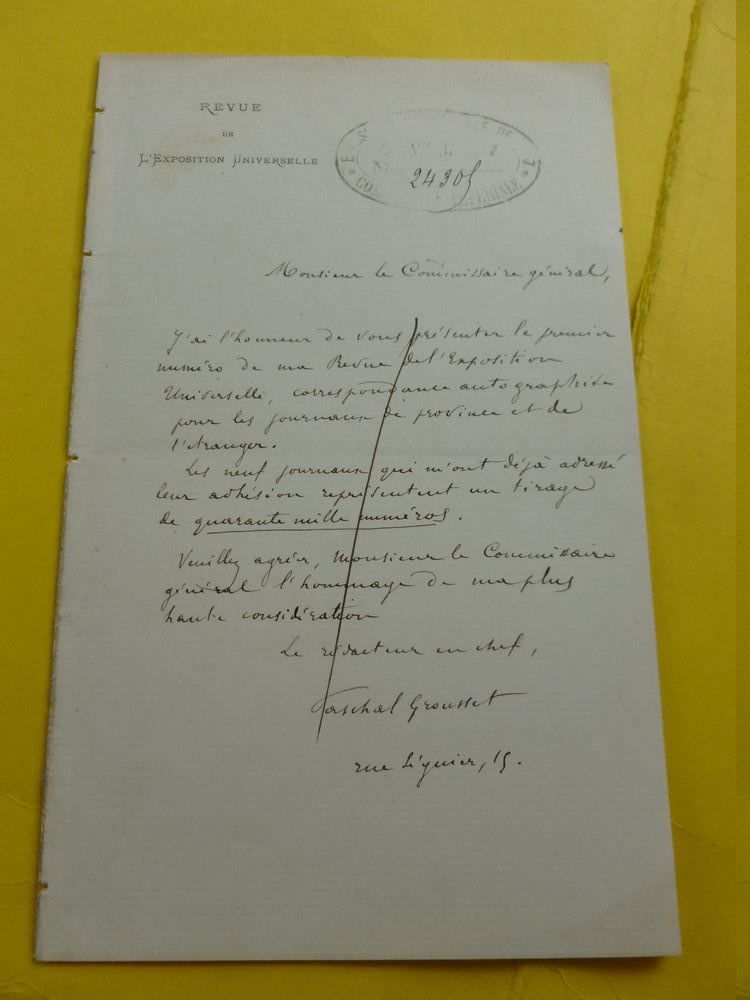 REVUE
DE
L'EXPOSITION UNIVERSELLE
24305
COM IMPÉRIALE
Monsieur le Commissaire général,
J'ai l'honneur de vous présenter le premier
numéro de ma Revue de l'Exposition
Universelle, correspondance autographiée
pour les journaux de province et de
l'étranger.
Les neuf journaux qui m'ont déjà adressé
leur adhésion représentent un tirage
de quarante mille numéros.
Veuillez agréer, Monsieur le Commissaire
général l'hommage de ma plus
haute considération
Le rédacteur en chef,
Paschal Grousset
rue Séguier, 15.